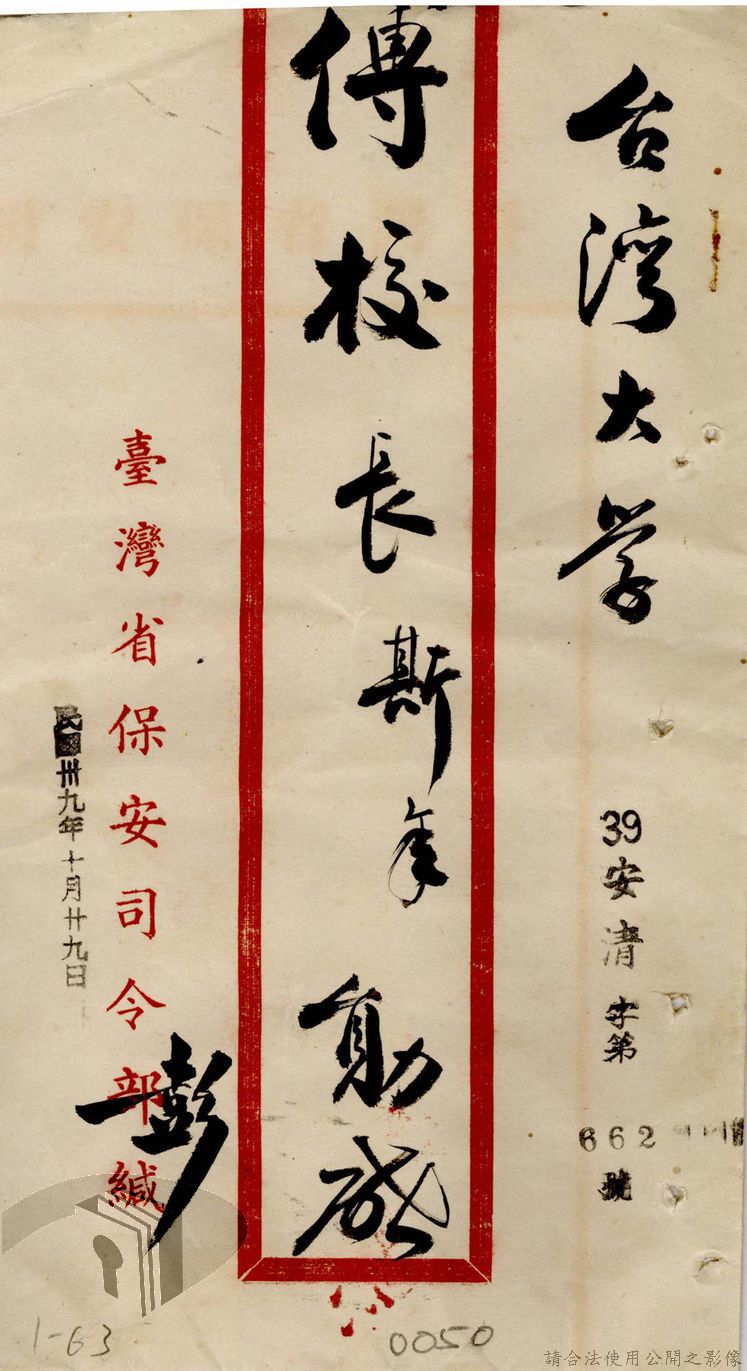 台湾大学
39安清字第662號
傅校長斯年勛啟
臺灣省保安司令部緘
彭
民國卅九年十月廿九日
1-63
0050
請合法使用公開之影像